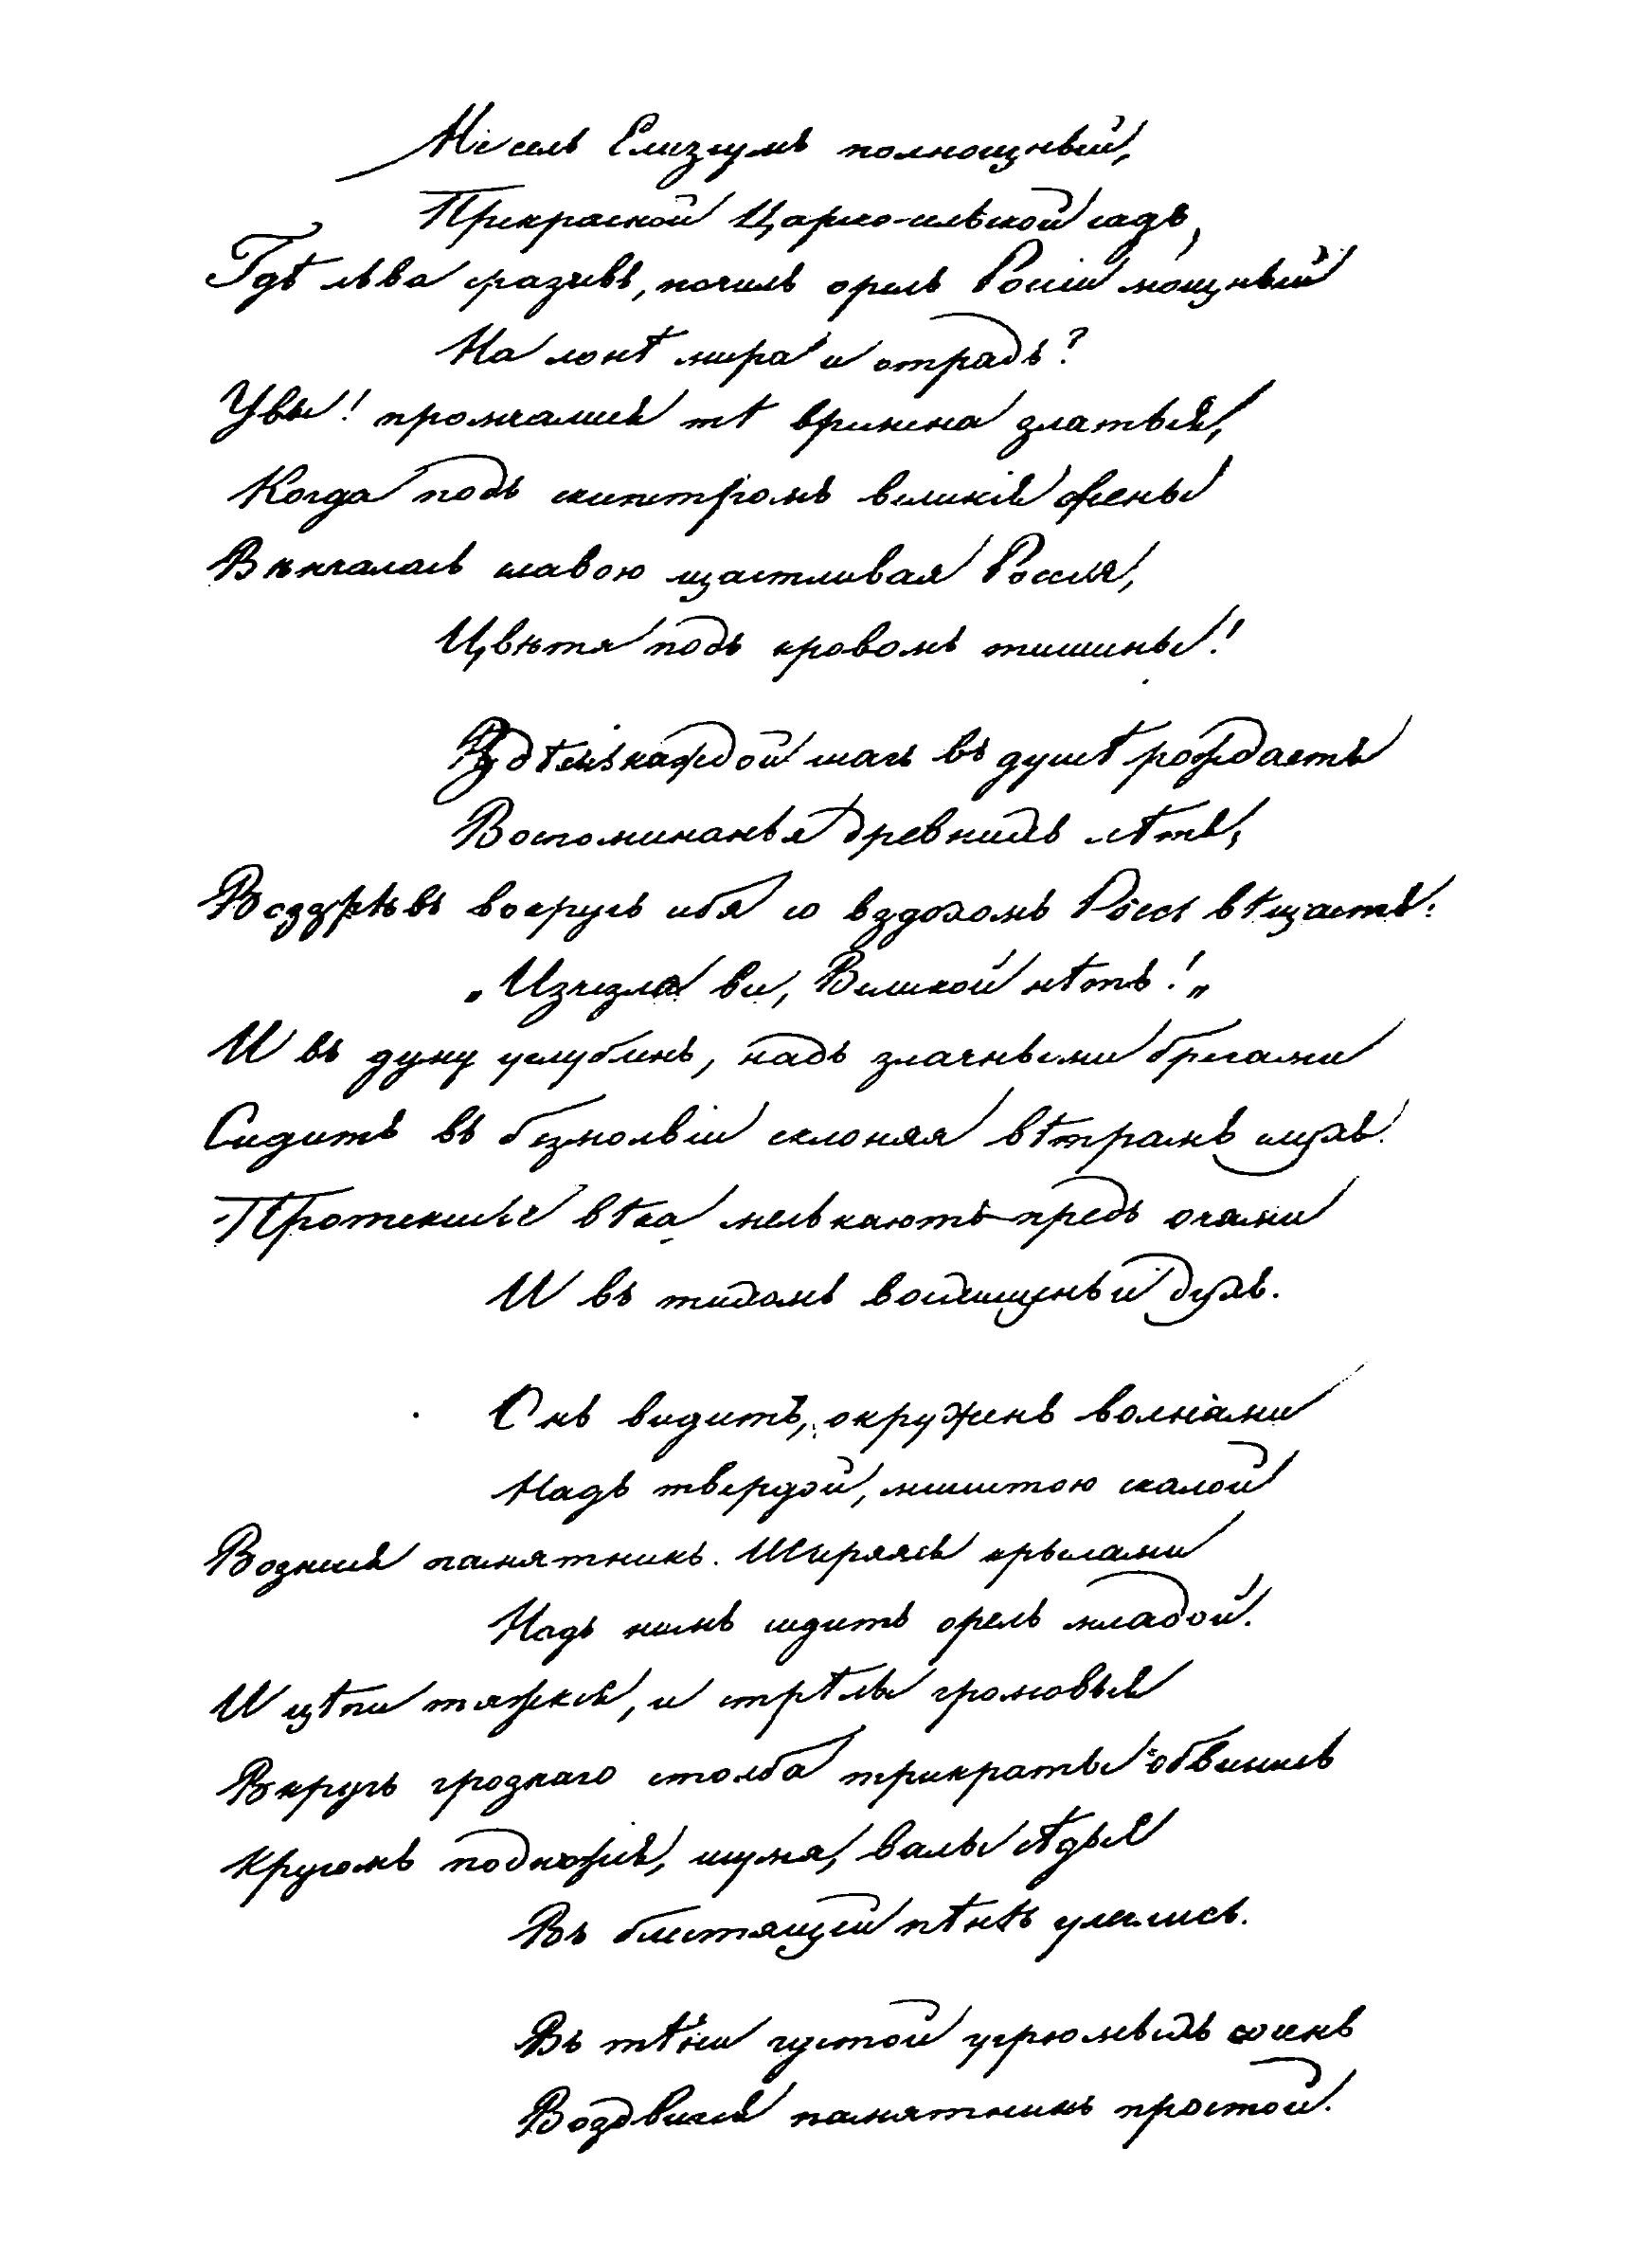 Не селъ Елизіумъ полнощный,
Прекраской Царско-сельской садъ,
Гдѣ льва сразивъ, почилъ орелъ Россіи мощный
На лонѣ мира и отрадъ?
Увы! промчалися тѣ времена златыя,
Когда подъ скипетромъ великія жены
Вѣнчалась славою щастливая Россія,
Цвѣтя подъ кровомъ тишины!
Здѣсь каждой шагъ въ душѣ рождаетъ
Воспоминанья древнихъ лѣтъ,
Воззрѣвъ вокругъ себя со вздохомъ Россъ вѣщаетъ:
„Изчезло все, Великой нѣтъ!„
И въ думу углубленъ, надъ злачными брегами
Сидитъ въ безмолвіи склоняя вѣтрамъ слухъ.
Протекшіе вѣка мелькаютъ предъ очами
И въ тихомъ восхищеньи духъ.
Онъ видитъ, окруженъ волнами
Надъ твердой, мшистою скалой
Вознесся памятникъ. Ширяяся крылами
Надъ нимъ сидитъ орелъ младой.
И цѣпи тяжкія, и стрѣлы громовыя
Вкругъ грознаго столба трикраты обвились
Кругомъ подножія, шумя, валы сѣдыя
Въ блестящей пѣнѣ улеглись.
Въ тѣни густой угрюмыхъ сосенъ
Воздвигся памятникъ простой.